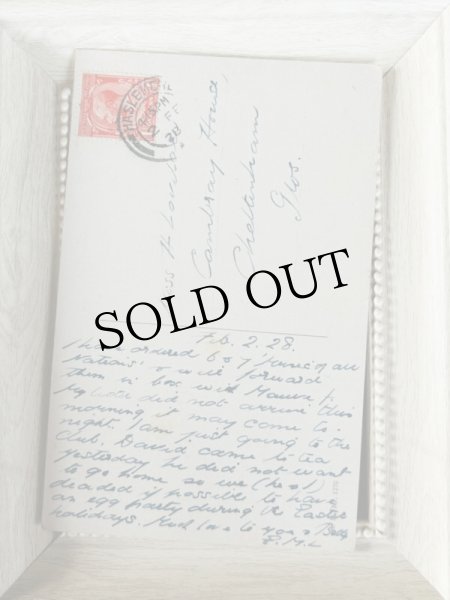 HASLEMERE
2 FE
28
Cambray House
Cheltenham
Glos.
SOLD OUT
Feb. 2. 28.
I have ordered 6 of of all
Nations' & will forward
them in box with
did not arrive this
morning it may come to-
night. I am just going to the
Club. David came to tea
yesterday he did not want
to go home so we (he & I)
decided if possible to have
an egg party during the Easter
holidays. Much love to you & Betty